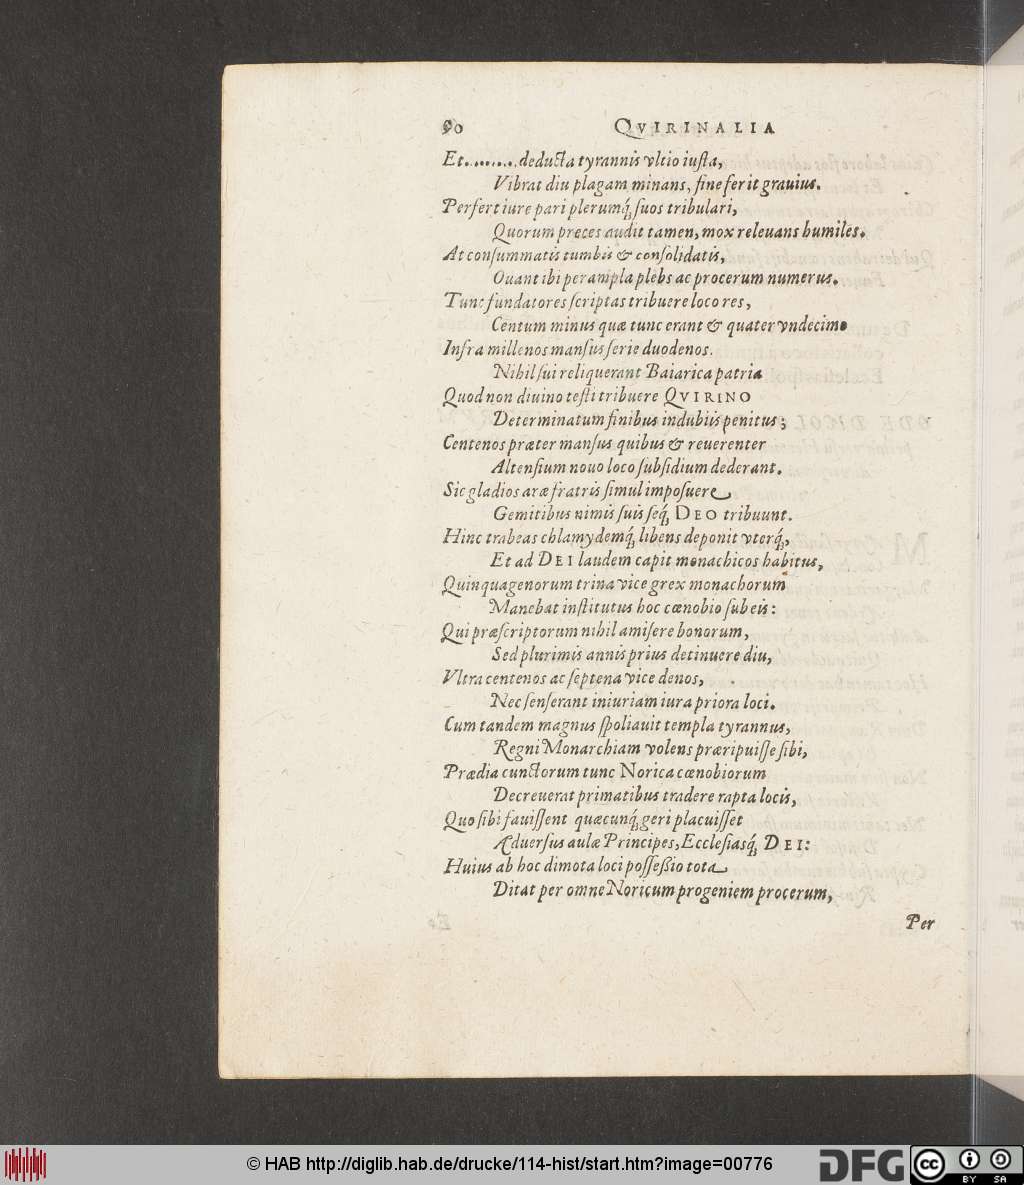 90 QVIRINALIA
Et......... deducta tyrannis vltio iuſta,
Vibrat diu plagam minans, fine ferit grauius.
Perfert iure pari plerumq́; ſuos tribulari,
Quorum preces audit tamen, mox releuans humiles.
At conſummatis tumbis & conſolidatis,
Ouant ibi perampla plebs ac procerum numerus.
Tunc fundatores ſcriptas tribuere loco res,
Centum minus quæ tunc erant & quater vndecim
Infra millenos manſus ſerie duodenos.
Nihil ſui reliquerant Baiarica patria
Quod non diuino teſti tribuere QVIRINO
Determinatum finibus indubiis penitus;
Centenos præter manſus quibus & reuerenter
Altenſium nouo loco ſubſidium dederant.
Sic gladios aræ fratris ſimul impoſuere
Gemitibus nimis ſuis ſeq́; DEO tribuunt.
Hinc trabeas chlamydemq́; libens deponit vterq́;,
Et ad DEI laudem capit monachicos habitus,
Quinquagenorum trina vice grex monachorum
Manebat inſtitutus hoc cœnobio ſub eis:
Qui præſcriptorum nihil amiſere bonorum,
Sed plurimis annis prius detinuere diu,
Vltra centenos ac ſeptena vice denos,
Nec ſenſerant iniuriam iura priora loci.
Cum tandem magnus ſpoliauit templa tyrannus,
Regni Monarchiam volens præripuiſſe ſibi,
Prædia cunctorum tunc Norica cœnobiorum
Decreuerat primatibus tradere rapta locis,
Quo ſibi fauiſſent quæcunq́; geri placuiſſet
Aduerſus aulæ Principes, Eccleſiasq́; DEI:
Huius ab hoc dimota loci poſſeßio tota
Ditat per omne Noricum progeniem procerum,
Per
© HAB http://diglib.hab.de/drucke/114-hist/start.htm?image=00776
DFG
cc
BY SA